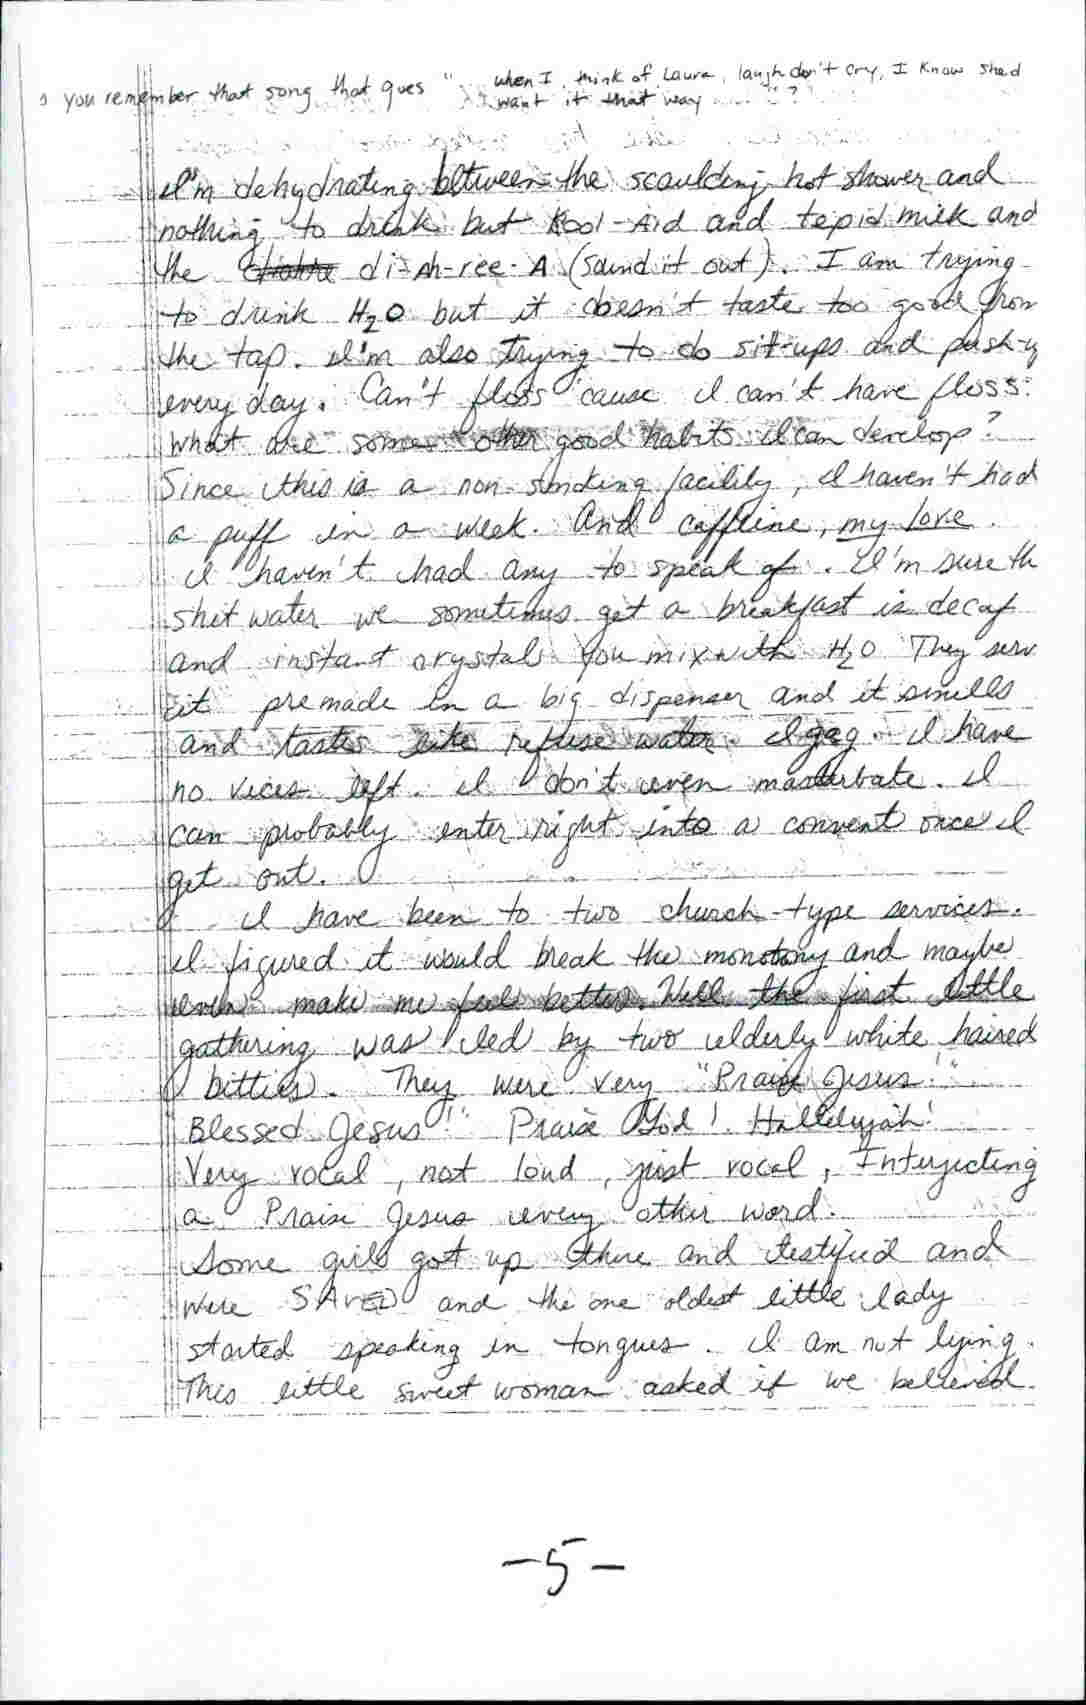 you remember that song that goes " when I think of Laura, laugh don't cry, I know shed
want it that way ....."?
I'm dehydrating between the scaulding hot shower and
nothing to drink but Kool-Aid and tepid milk and
the di-Ah-ree-A (sound it out). I am trying
to drink H2O but it doesn't taste too good from
the tap. I'm also trying to do sit-ups and push-u
every day. Can't floss 'cause I can't have floss.
What are some other good habits I can develop?
Since this is a non-smoking facility, I haven't had
a puff in a week. And caffeine, my love.
I haven't had any to speak of. I'm sure th
shit water we sometimes get a breakfast is decaf
and instant crystals you mix with H2O They serv
it premade in a big dispenser and it smells
and tastes like refuse water. I gag. I have
no vices left. I don't even masturbate. I
can probably enter right into a convent once I
get out.
I have been to two church-type services.
I figured it would break the monotony and maybe
even make me feel better. Well the first little
gathering was led by two elderly white haired
bitties. They were very "Praise Jesus!"
Blessed Jesus!" Praise God! Hallelujah!
Very vocal, not loud, just vocal, Interjecting
a Praise Jesus every other word.
Some girls got up there and testified and
were SAVED and the one oldest little lady
started speaking in tongues. I am not lying.
This little sweet woman asked if we believed.
-5-